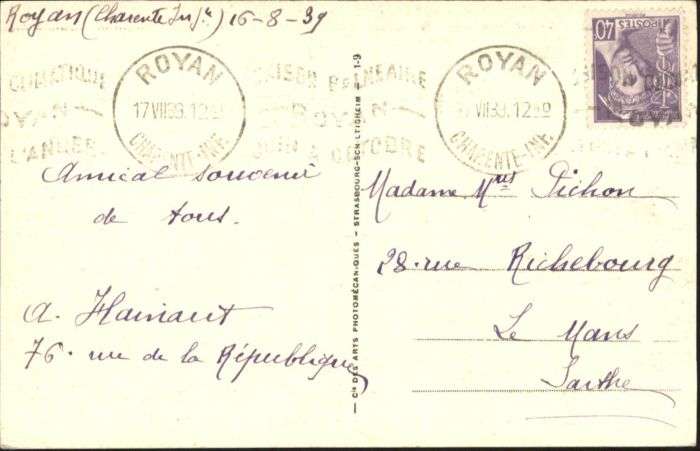 Royan (Charente Infre) 16-8-39
CLIMATIQUE
ROYAN
L'ANNÉE
ROYAN
17 VIII 39. 12
CHARENTE-INF.
SAISON BALNEAIRE
ROYAN
JUIN à OCTOBRE
ROYAN
VIII 39. 12
CHARENTE-INF.
POSTES
40
Amical souvenir
de tous.
A. Hainaut
76. rue de la République
— Cie DES ARTS PHOTOMÉCANIQUES — STRASBOURG-SCHILTIGHEIM — 1-9
Madame Pichon
28. rue Richebourg
Le Mans
Sarthe